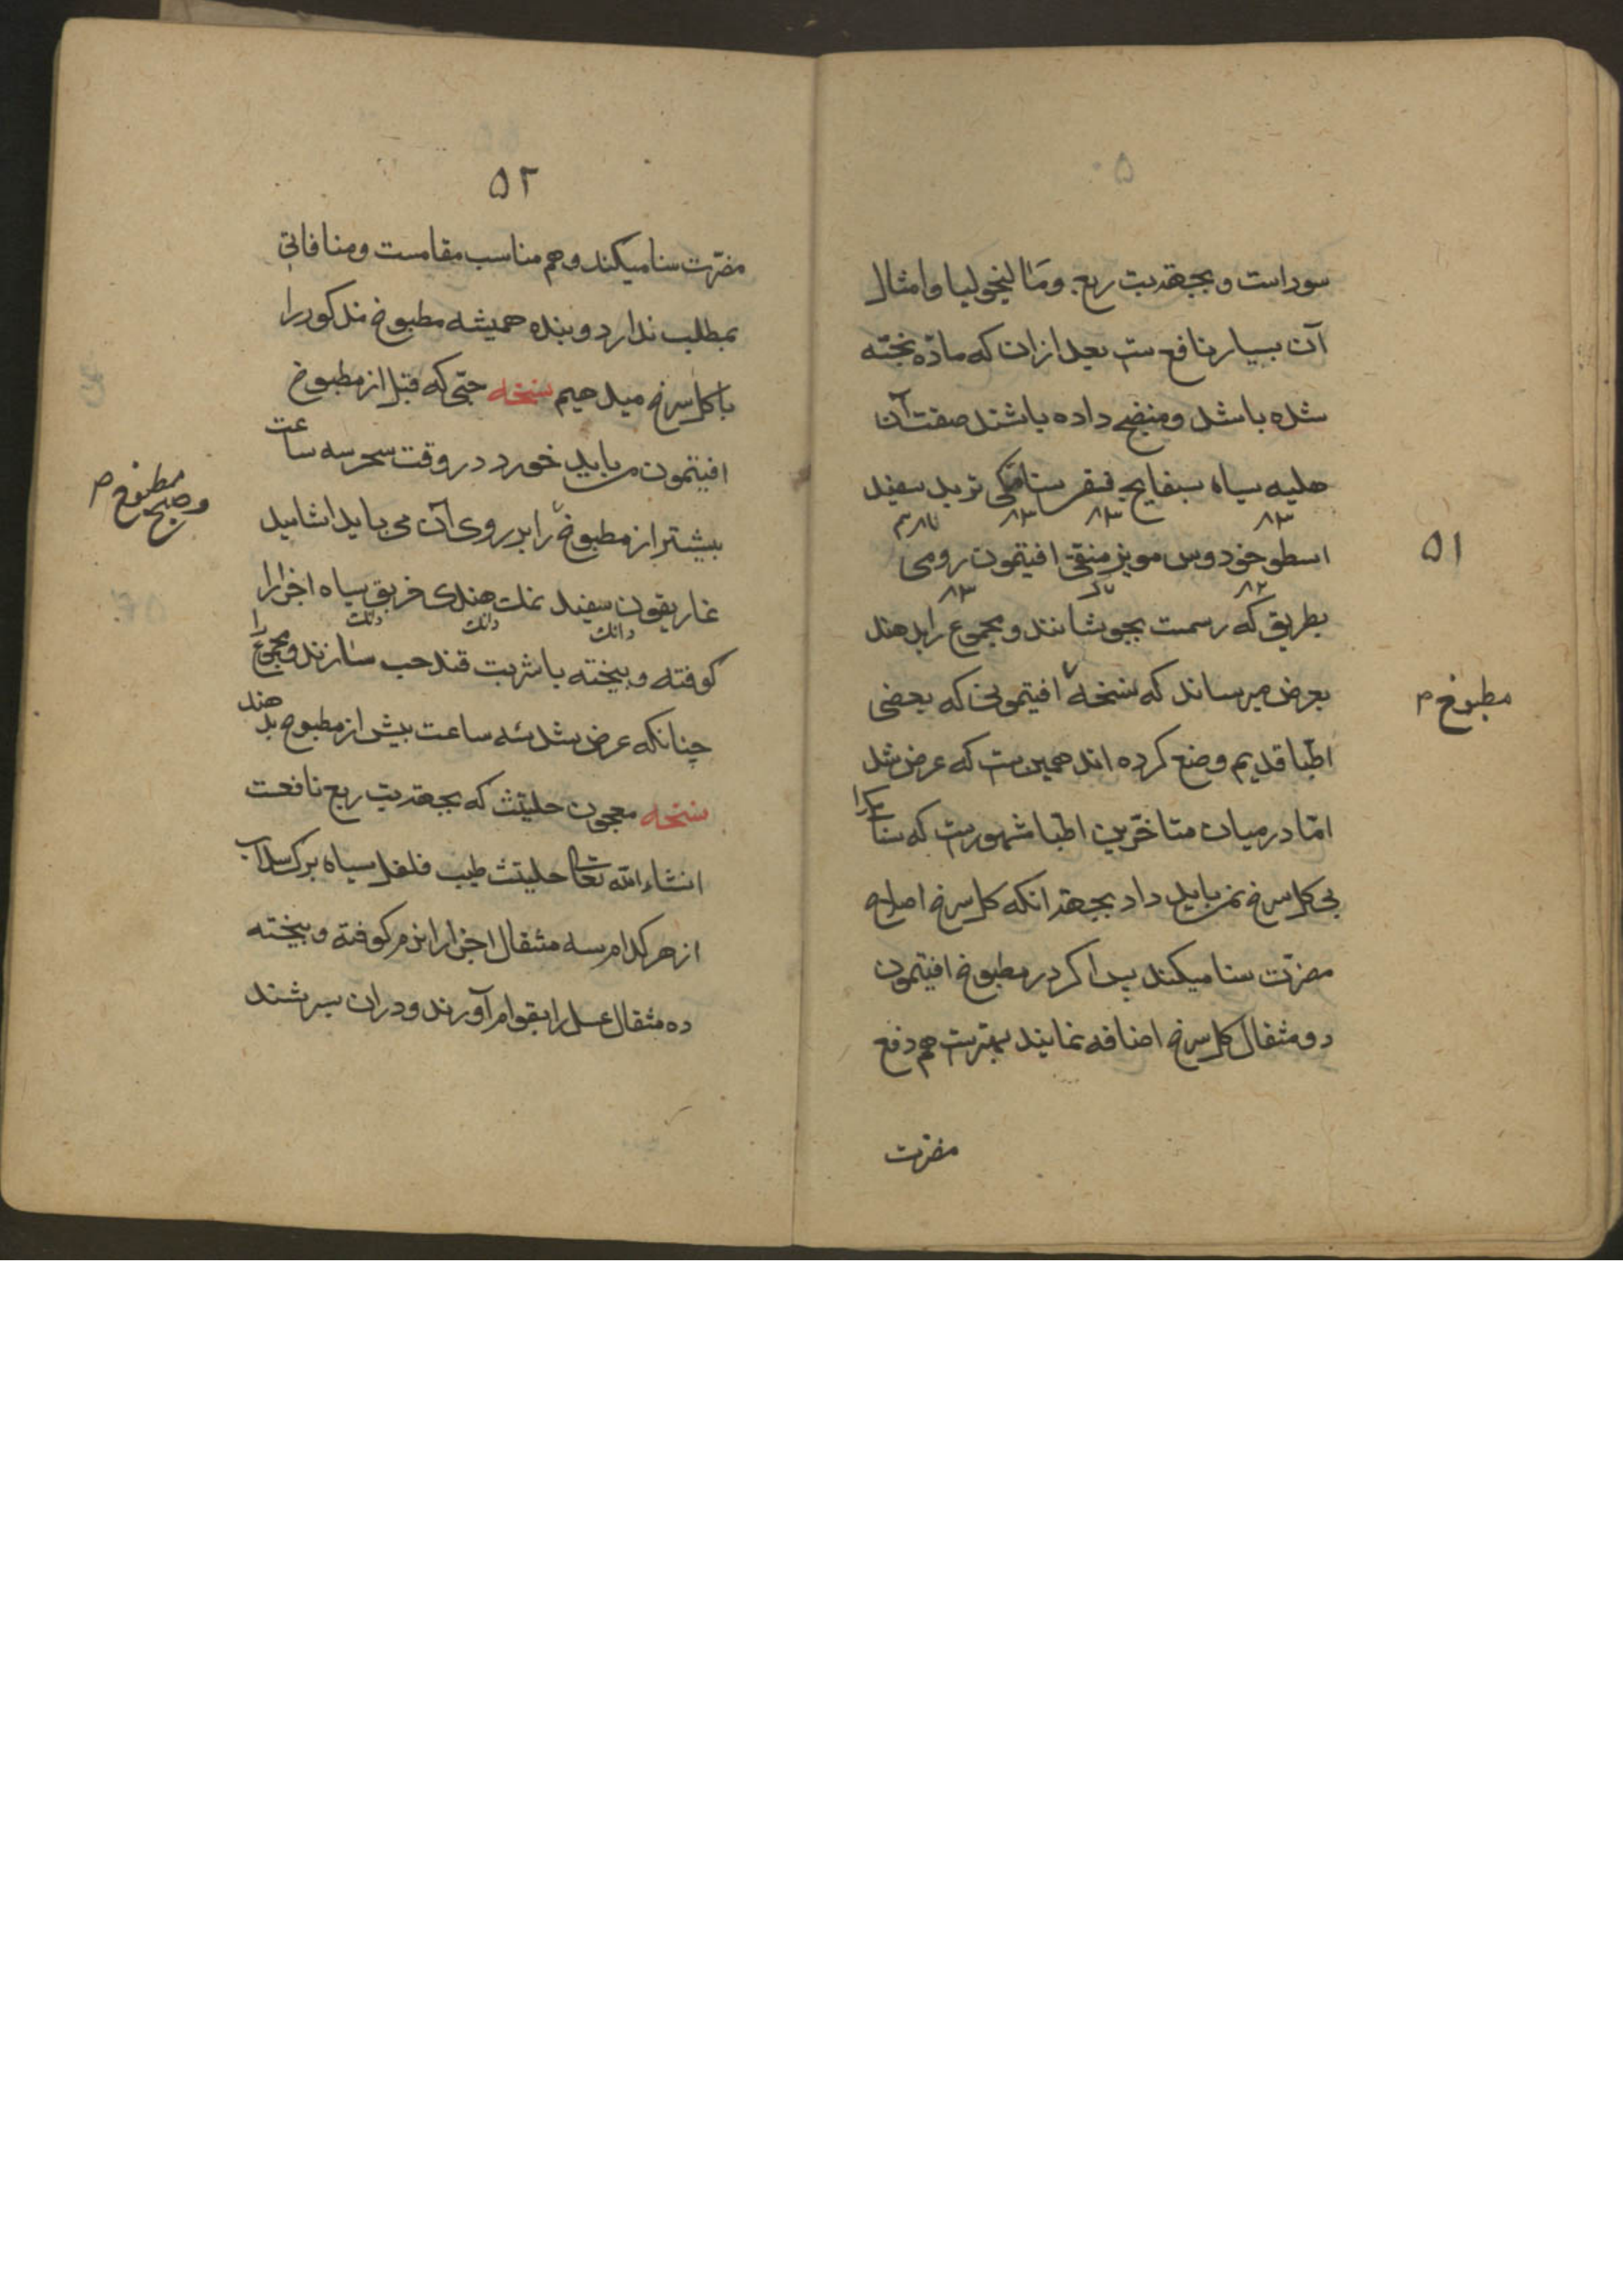 ۵۱
سوداست و بجهة تب ربع و مالیخولیا و امثال
آن بسیار نافع ست بعد ازان که ماده پخته
شده باشد و منضج داده باشند صفت آن
هلیه سیاه بسفایج فستقی سنامکی تربد سفید
اسطوخودوس مویز منقی افیتمون رومی
بطریق که رسمت بجوشانند و مجموع را بدهند
بعرض میرساند که نسخه افیتمونی که بعضی
مطبوخ م
اطبا قدیم وضع کرده اند همین ست که عرض شد
امّا در میان متاخّرین اطبا مشهور ست که سنا مکرا
بی کل سرخ نمی باید داد بجهة انکه کل سرخ اصلاح
مضرّت سنا میکند پس اکر در مطبوخ افیتمون
دو مثقال کل سرخ اضافه نمایند بهتر ست هم دفع
مضرت
۵۲
مضرّت سنا میکند و هم مناسب مقامست و منافاتی
بمطلب ندارد و بنده همیشه مطبوخ مذکور را
با کل سرخ میدهیم نسخه حبّی که قبل از مطبوخ
افیتمون می باید خورد در وقت سحر سه ساعت
بیشتر از مطبوخ را بر روی آن می باید اشامید
وصبح مطبوخ م
غاریقون سفید نمک هندی خربق سیاه اجزا را
دانک دانک دانک
کوفته و بیخته با شربت قند حب سازند و مجموع را
چنانکه عرض شد سه ساعت بیش از مطبوخ بدهند
نسخه معجون حلیتث که بجهة تب ربع نافعت
انشاء الله تعالی حلیتث طیب فلفل سیاه برک سداب
از هر کدام سه مثقال اجزا را نرم کوفته و بیخته
ده مثقال عسل را بقوام آورند و دران بسرشند